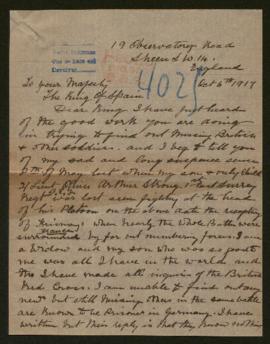 19 Observatory Road
Sheen S.W.14.
England
402
Oct 6th 1917
To your Majesty
The King of Spain
Dear King I have just heard
of the good work you are doing
in trying to find out Missing British
& other soldiers. and I beg to tell you
of my sad and long suspence since
of May last when my son & only child
2/Lieut Arthur Strong East Surrey
Regt was lost seen fighting at the head
of his Platoon on the above date the
when nearly the whole Batt. were
surrounded by far out numbering
a Widow and my son who was so good to
me was all I have in the world and
I have made all inquiries of the British
Red Cross. I am unable to find out any
news but still missing others in the same battle
are known to be Prisoner in Germany. I have
written but their reply is that they know nothing